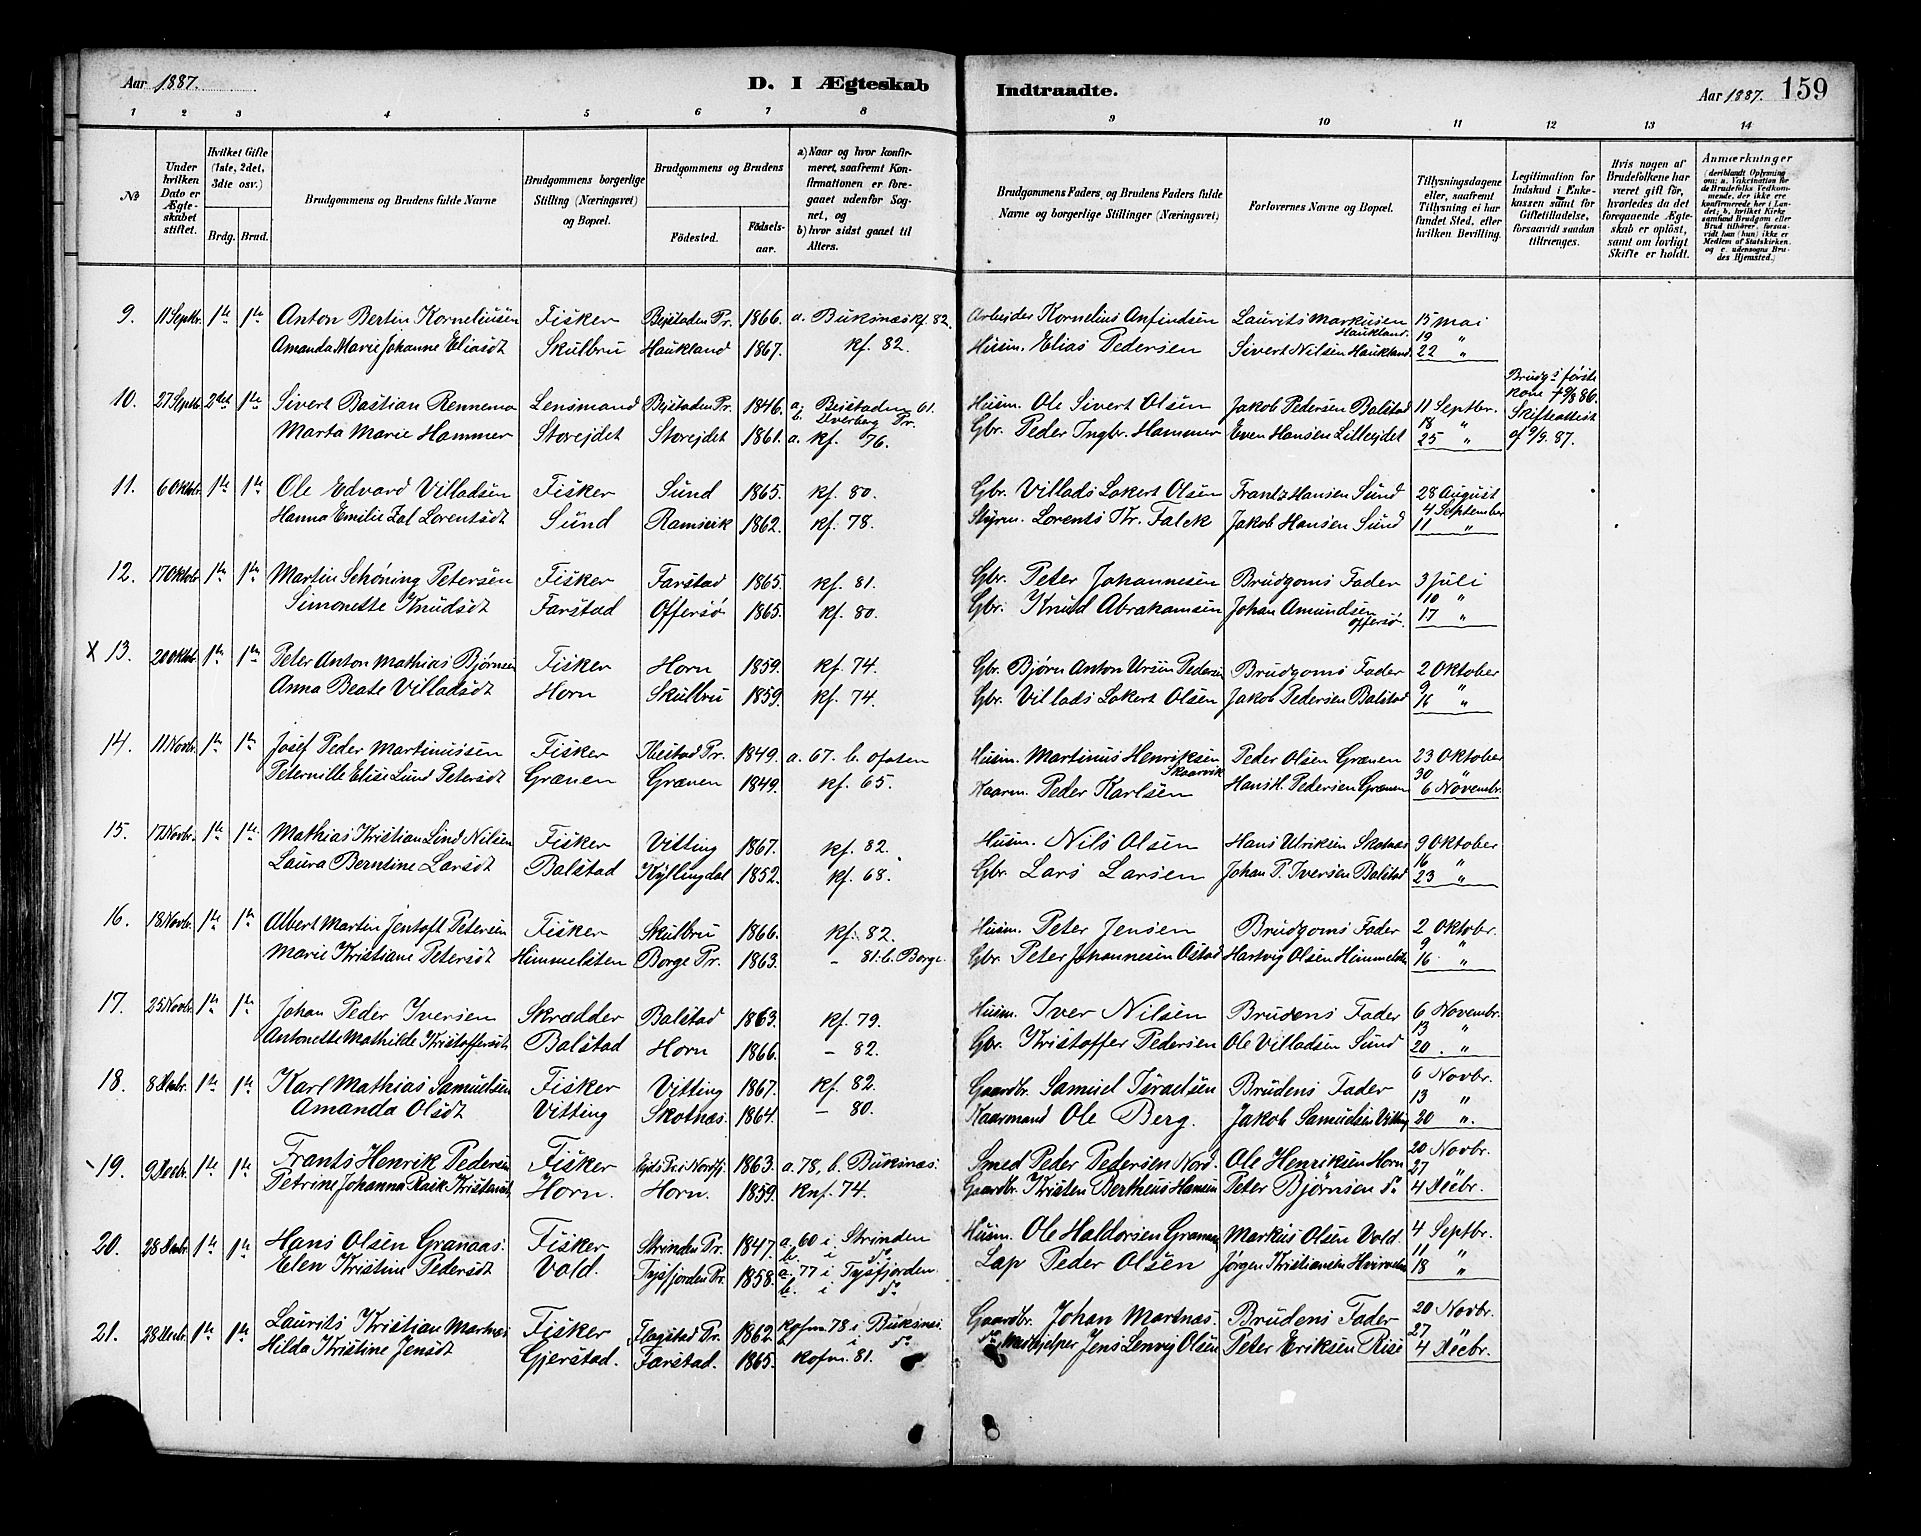 Aar 1887.
D. I Ægteskab
Indtraadte.
Aar 1887. 159
1 2 3 4 5 6 7 8 9 10 11 12 13 14
№
Under hvilken Dato er Ægteskabet stiftet.
Hvilket Gifte (1ste, 2det, 3die osv.)
Brdg. Brud.
Brudgommens og Brudens fulde Navne
Brudgommens borgerlige Stilling (Næringsvei) og Bopæl.
Brudgommens og Brudens
Fødested. Fødselsaar.
a) Naar og hvor konfirmeret, saafremt Konfirmationen er foregaaet udenfor Sognet, og
b) hvor sidst gaaet til Alters.
Brudgommens Faders og Brudens Faders fulde Navne og borgerlige Stillinger (Næringsvei)
Forlovernes Navne og Bopæl.
Tillysningsdagene eller, saafremt Tillysning ei har fundet Sted, efter hvilken Bevilling.
Legitimation for Indskud i Enkekassen samt for Giftetilladelse, forsaavidt saadan tiltrenges.
Hvis nogen af Brudefolkene har været gift før, hvorledes da det foregaaende Ægteskab er opløst, samt om lovligt Skifte er holdt.
Anmærkninger (deriblandt Oplysning om: a. Vakcination for de Brudefolks Vedkommende, der ikke ere konfirmerede her i Landet; b. hvilket Kirkesamfund Brudgom eller Brud tilhører, forsaavidt han (hun) ikke er Medlem af Statskirken, og c. udensogns Brudes Hjemsted.)
9. 11 Septbr. 1ste 1ste Anton Bertin Korneliusen Fisker Beistaden Pr. 1866. a. Buksnæs kf. 82. Arbejder Kornelius Anfindsen Laurits Markusen Haukland. 15 Mai
Amanda Marie Johanne Eliasdt Skulbru Haukland 1867. kf. 82. Husm. Elias Pedersen Sivert Nilsen Haukland. 19 "
22 "
10. 27 Septbr. 2det 1ste Sivert Bastian Rennemo Lensmand Beistaden Pr. 1846. a. Beistaden 61. b. Dverberg Pr. Husm. Ole Sivert Olsen Jakob Pedersen Balstad 11 Septbr. Brudg.s første kone † 9/8 86. Skifteattest af 9/9. 87.
Marta Marie Hammer Storejdet Storejdet 1861. a. kf. 76. Gbr. Peder Ingbr. Hammer Even Hansen Lillejdet 18 "
25 "
11. 6 Oktbr. 1ste 1ste Ole Edvard Villadsen Fisker Sund 1865. kf. 80. Gbr. Villads Lakert Olsen Frantz Hansen Sund 28 August
Hanna Emilie Zal Lorentsdt Sund Ramsvik 1862. kf. 78. Styrm. Lorents Kr. Falck Jakob Hansen Sund 4 September
11 "
12. 17 Oktbr. 1ste 1ste Martin Schøning Petersen Fisker Farstad 1865. kf. 81. Gbr. Peter Johannesen Brudgoms Fader 3 Juli
Simonette Knudsdt Farstad Offersø 1865. kf. 80. Gbr. Knud Abrahamsen Johan Amundsen Offersø. 10 "
17 "
X 13. 20 Oktbr. 1ste 1ste Peter Anton Mathias Bjørnsen Fisker Horn 1859. kf. 74. Gbr. Bjørn Anton Ursin Pedersen Brudgoms Fader 2 Oktober
Anna Beate Villadsdt Horn Skulbru 1859. kf. 74. Gbr. Villads Lakert Olsen Jakob Pedersen Balstad 9 "
16 "
14. 11 Novbr. 1ste 1ste Josef Peder Martinussen Fisker Ibestad Pr. 1849. a. 67. b. Ofoten Husm. Martinus Henriksen Skaarvik Peder Olsen Grænen 23 Oktober
Peternille Elise Lund Petersdt Grænen Grænen 1849. kf. 65. Kaarm. Peder Karlsen Hans K. Pedersen Grænen 30 "
6 Novembr.
15. 17 Novbr. 1ste 1ste Mathias Kristian Lind Nilsen Fisker Vitting 1867. kf. 82. Husm. Nils Olsen Hans Ulriksen Skotnæs 9 Oktober
Laura Berntine Larsdt Balstad Kyllingdal 1852. kf. 68. Gbr. Lars Larsen Johan P. Iversen Balstad 16 "
23 "
16. 18 Novbr. 1ste 1ste Albert Martin Jentoft Petersen Fisker Skulbru 1866. kf. 82. Husm. Peter Jensen Brudgoms Fader 2 Oktober.
Marie Kristiane Petersdt Himmelsten Borge Pr. 1863. – 81. b. Borge. Gbr. Peter Johannesen Østad Hartvig Olsen Himmelsten 9 "
16 "
17. 25 Novbr. 1ste 1ste Johan Peder Iversen Skrædder Balstad 1863. kf. 79. Husm. Iver Nilsen Brudens Fader 6 Novembr.
Antonette Mathilde Kristoffersdt. Balstad Horn 1866. – 82. Gbr. Kristoffer Pedersen Ole Villadsen Sund 13 "
20. "
18. 8 Decbr. 1ste 1ste Karl Mathias Samuelsen Fisker Vitting 1867. kf. 82. Gaardbr. Samuel Israelsen Brudens Fader 6 Novbr.
Amanda Olsdt Vitting Skotnæs. 1864. – 80. Kaarmand Ole Berg. Jakob Samuelsen Vitting 13 "
20 ".
19. 9 Decbr. 1ste 1ste Frants Henrik Pedersen Fisker Ejds Pr. i Nordfj. 1863. a. 78, b. Buksnæs. Smed Peder Pedersen Nord. Ole Henriksen Horn 20 Novbr.
Petrine Johanna Rask Kristensdt. Horn. Horn. 1859. Knf. 74. Gaardbr. Kristen Bertheus Hansen Peter Bjørnsen do 27
4 Decbr.
20. 28 Decbr. 1ste 1ste Hans Olsen Granaas. Fisker Strinden Pr. 1847. a. 60 i Strinden b. i do Husm. Ole Haldorsen Granaas Markus Olsen Vold. 4 Septbr.
Elen Kristine Pedersdt Vold. Tysfjorden Pr. 1858. a. 77 i Tysfjorden. b. i do Lap Peder Olsen Jørgen Kristiansen 11
18 "
21. 28 Decbr. 1ste 1ste Laurits Kristian Martnæs Fisker Flagstad Pr. 1862. Kofm. 78 i Buksnæs. b. do Gaardbr. Johan Martnæs. Brudens Fader 20 Novbr.
Hilda Kristine Jensdt Gjerstad. Farstad. 1865. Kofm. 81. do Medhjelper Jens Lenvig Olsen Peter Eriksen Rise 27
4 Decbr.